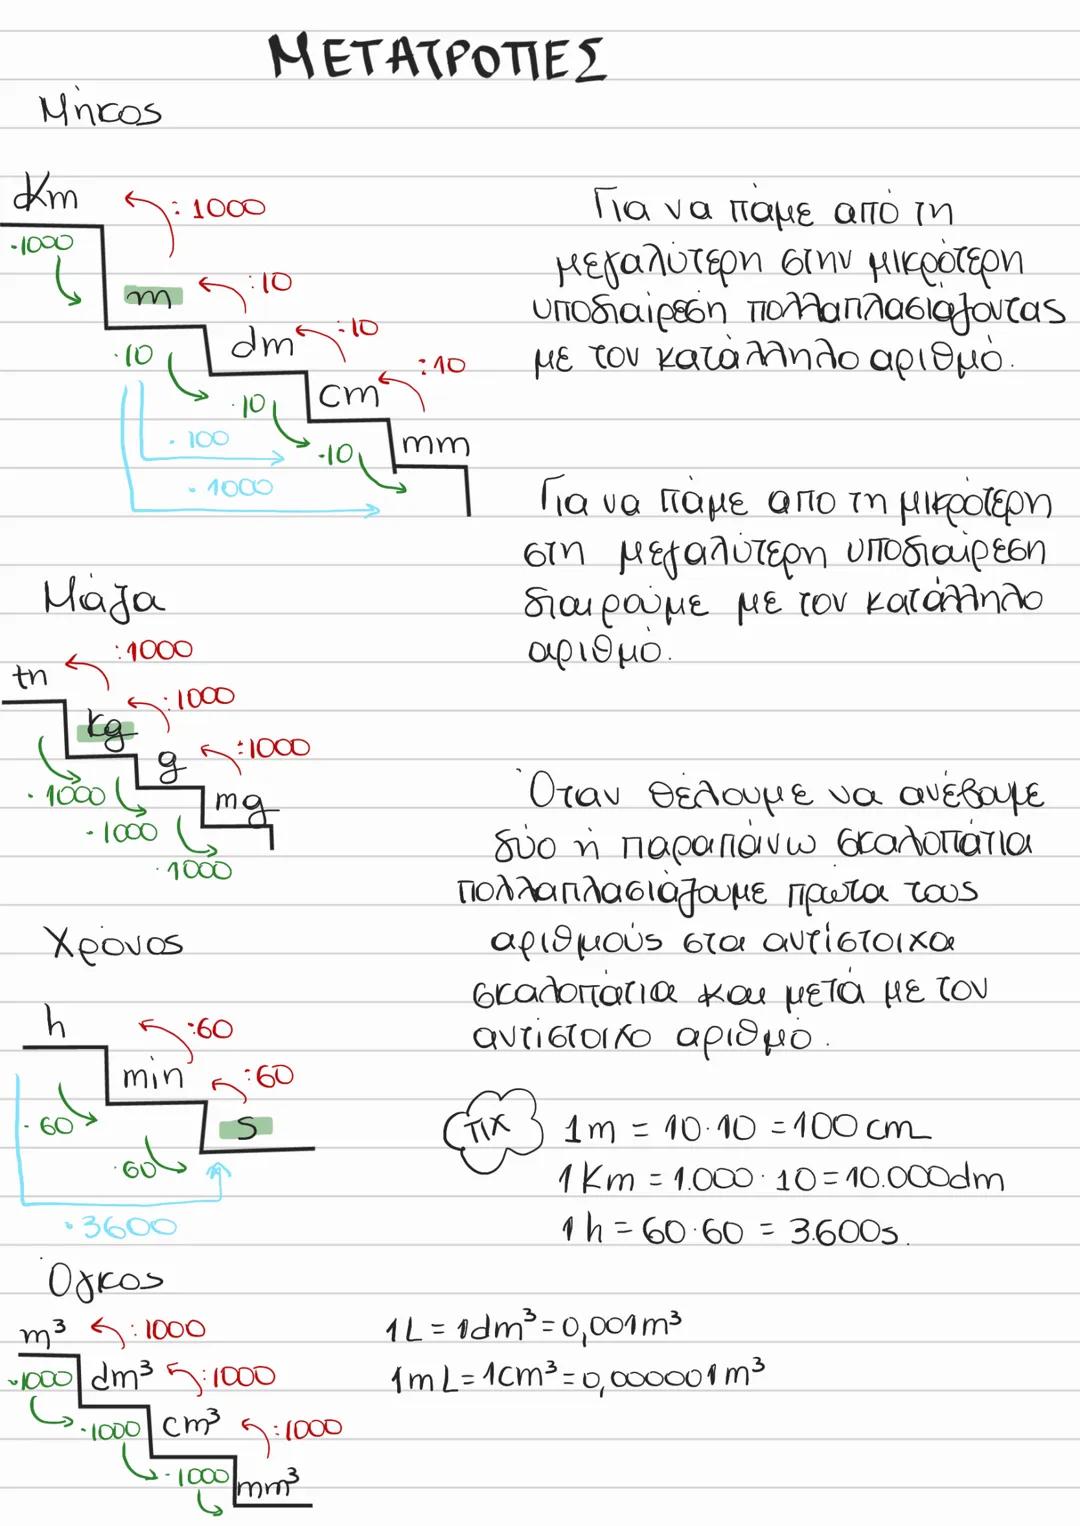 ΜΕΤΑΤΡΟΠΕΣ
Μήκος
Km
:1000
·1000
m
:10
dm
:10
·10
cm
:10
·10
mm
·100
·10
·1000
Για να πάμε από τη
μεγαλύτερη στην μικρότερη
υποδιαίρεση πολλαπλασιάζοντας
με τον κατάλληλο αριθμό.
Για να πάμε απο τη μικρότερη
στη μεγαλύτερη υποδιαίρεση
διαιρούμε με τον κατάλληλο
αριθμό.
Μάζα
tn
:1000
kg
:1000
g
:1000
mg
·1000
·1000
·1000
Όταν θέλουμε να ανέβουμε
δύο ή παραπάνω σκαλοπάτια
πολλαπλασιάζουμε πρώτα τους
αριθμούς στα αντίστοιχα
σκαλοπάτια και μετά με τον
αντίστοιχο αριθμό.
Χρόνος
h
:60
min
:60
s
·60
·60
·3600
ΠΧ
1m = 10·10 = 100 cm
1Km = 1.000·10 = 10.000dm
1h = 60·60 = 3.600s.
Όγκος
m³
:1000
·1000
dm³
:1000
·1000
cm³
:1000
·1000
mm³
1L = 1dm³ = 0,001m³
1mL = 1cm³ = 0,000001m³